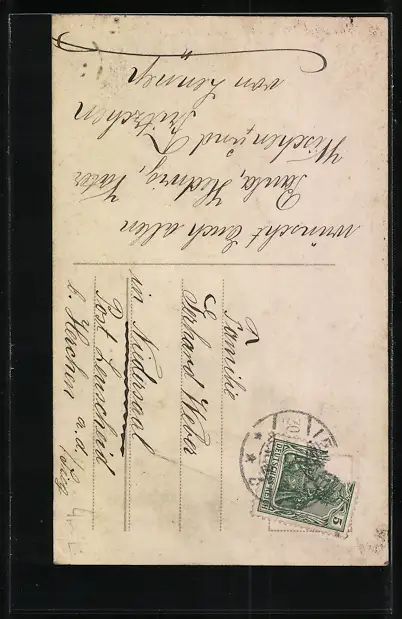 wünscht Euch allen
Paula, Hedwig, Vater
und Fritzchen
von Lennep
Familie
Gerhard Weber
in Niedersaal
Post Leuscheid
b. Herchen a. d. Sieg
DEUTSCHES REICH
5